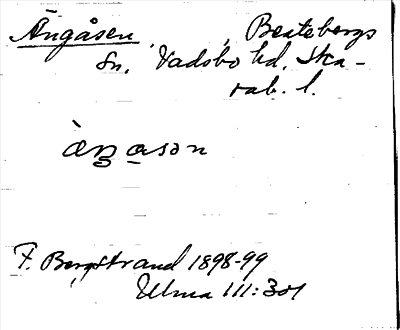 Ängåsen, Beatebergs
Sn, Vadsbo hd, Ska-
rab. l.
àŋasən
F. Bergstrand 1898-99
Ulma 111:301